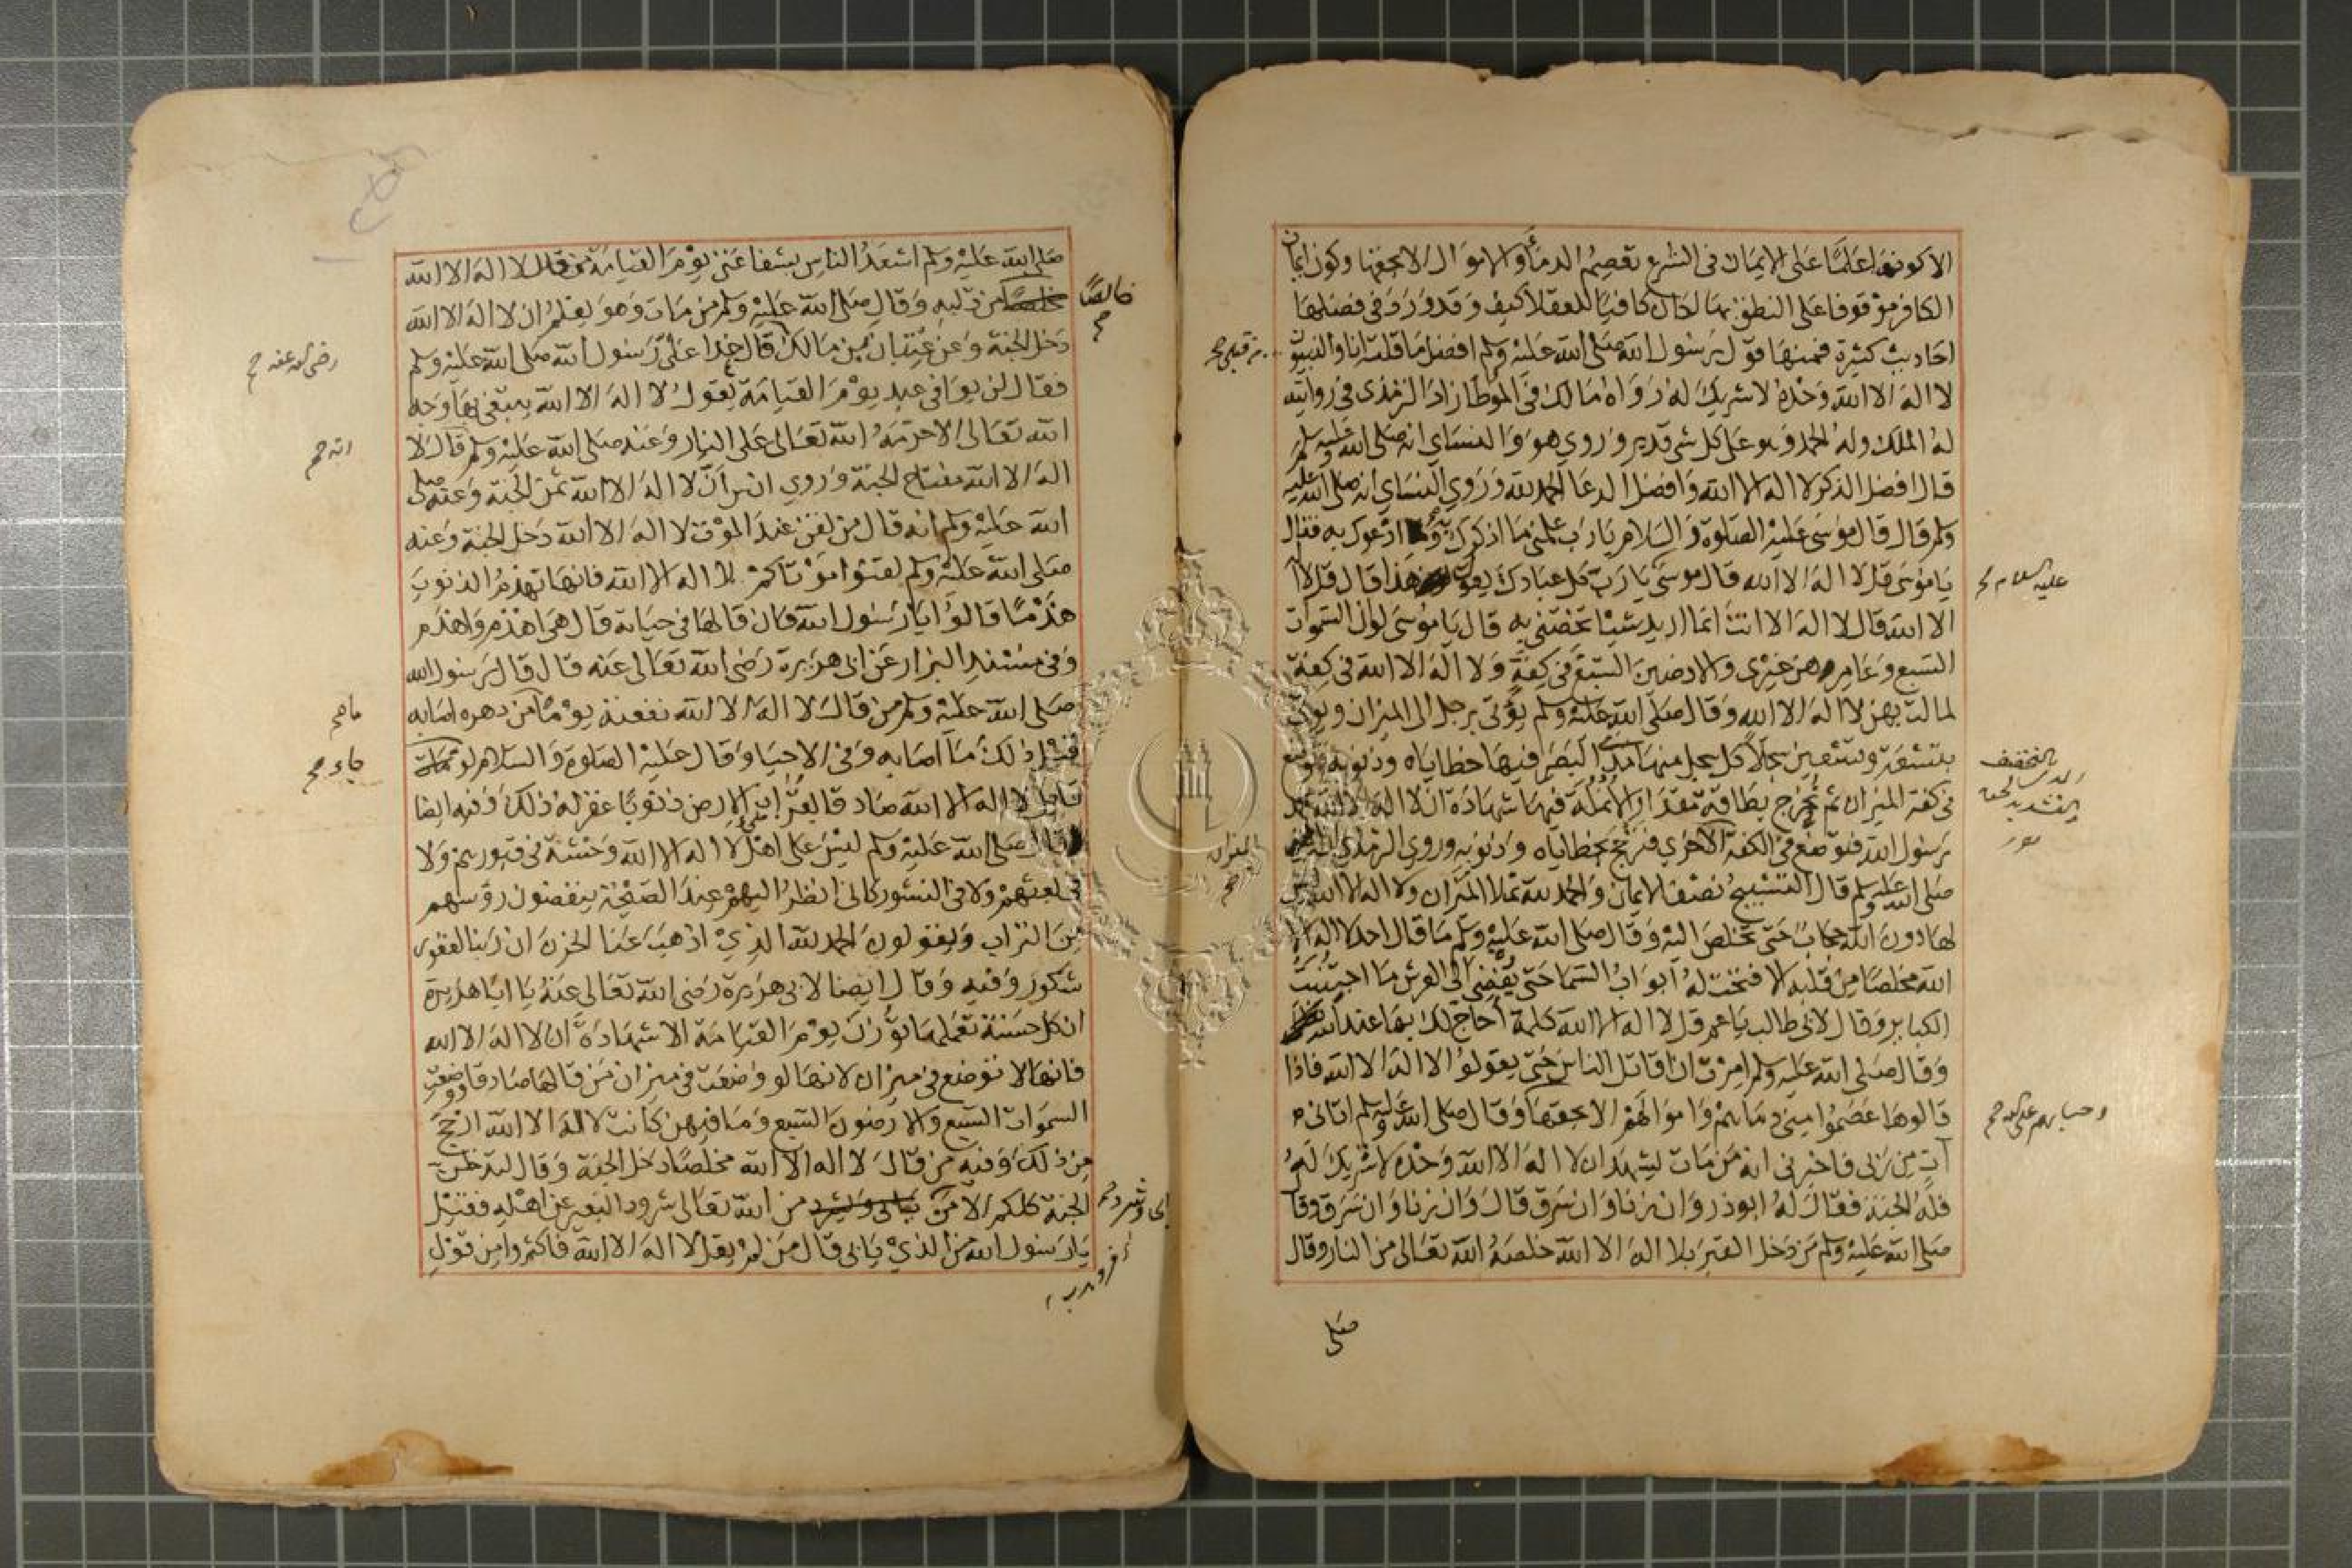 الا كونها علما على الايمان في الشرع تعصم الدماء والاموال الا بحقها وكون ايمان
الكافر موقوفا على النطق بها لكان كافيا للعقلا كيف وقد ورد في فضلها
احاديث كثيرة فمنها قول رسول الله صلى الله عليه وسلم افضل ما قلت انا والنبيون
من قبلي صح
لا اله الا الله وحده لا شريك له رواه مالك في الموطا زاد الترمذي في روايته
له الملك وله الحمد وهو على كل شي قدير وروي هو والنساي انه صلى الله عليه وسلم
قال افضل الذكر لا اله الا الله وافضل الدعا الحمد لله وروي النساي انه صلى الله عليه
وسلم قال قال موسى عليه الصلوة والسلام يا رب علمني ما اذكرك به وادعوك به فقال
يا موسى قل لا اله الا الله قال موسى يا رب كل عبادك يقول هذا قال قل لا اله
عليه السلام صح
الا الله قال لا اله الا انت انما اريد شيئا تخصني به قال يا موسى لو ان السموات
السبع وعامرهن غيري والارضين السبع في كفة ولا اله الا الله في كفة
لمالت بهن لا اله الا الله وقال صلى الله عليه وسلم يؤتى برجل الى الميزان ويؤتى
بتسعة وتسعين سجلا كل سجل منها مد البصر فيها خطاياه وذنوبه فتوضع
بالتخفيف
في كفة الميزان ثم تخرج بطاقة مقدار الانملة فيها شهادة ان لا اله الا الله محمد
رسول الله فتوضع في الكفة الاخري فترجح بخطاياه وذنوبه وروي الترمذي انه
الميزان
صح
صلى الله عليه وسلم قال التسبيح نصف الايمان والحمد لله تملا الميزان ولا اله الا الله ليس
لها دون الله حجاب حتى تخلص اليه وقال صلى الله عليه وسلم ما قال احد لا اله الا
الله مخلصا من قلبه الا فتحت له ابواب السما حتى يفضي الى العرش ما اجتنبت
الكباير وقال لابي طالب يا عم قل لا اله الا الله كلمة أحاج لك بها عند الله
وقال صلى الله عليه وسلم امرت ان اقاتل الناس حتى يقولوا لا اله الا الله فاذا
قالوها عصموا مني دماءهم واموالهم الا بحقها وقال صلى الله عليه وسلم اتاني
وحسابهم على الله صح
آت من ربي فاخبرني انه من مات يشهد ان لا اله الا الله وحده لا شريك له
فله الجنة فقال له ابو ذر وان زنا وان سرق قال وان زنا وان سرق وقال
صلى الله عليه وسلم من دخل القبر بلا اله الا الله خلصه الله تعالى من النار وقال
صلى
صلى الله عليه وسلم اسعد الناس بشفاعتي يوم القيامة من قال لا اله الا الله
خالصا
صح
مخلصا من قلبه وقال صلى الله عليه وسلم من مات وهو يعلم ان لا اله الا الله
دخل الجنة وعن عتبان بن مالك قال غدا على رسول الله صلى الله عليه وسلم
رضي الله عنه صح
فقال لن يوافي عبد يوم القيامة يقول لا اله الا الله يبتغي بها وجه
الله تعالى الا حرمه الله تعالى على النار وعنه صلى الله عليه وسلم قال لا
انه صح
اله الا الله مفتاح الجنة وروي انس أن لا اله الا الله ثمن الجنة وعنه صلى
الله عليه وسلم انه قال من لقن عند الموت لا اله الا الله دخل الجنة وعنه
صلى الله عليه وسلم لقنوا موتاكم لا اله الا الله فانها تهدم الذنوب
هدما قالوا يا رسول الله فان قالها في حياته قال هي اهدم واهدم
وفي مسند البزار عن ابي هريرة رضى الله تعالى عنه قال قال رسول الله
صلى الله عليه وسلم من قال لا اله الا الله نفعته يوما من دهره اصابه
ما صح
قبل ذلك ما اصابه وفي الاحيا وقال عليه الصلوة والسلام لو
جاء صح
قايل لا اله الا الله صادقا بقراب الارض ذنوبا غفر له ذلك وفيه ايضا
وقال صلى الله عليه وسلم ليس على اهل لا اله الا الله وحشة في قبورهم ولا
في بعثهم ولا في النشور كاني انظر اليهم عند الصيحة ينفضون رؤسهم
من التراب ويقولون الحمد لله الذي اذهب عنا الحزن ان ربنا لغفور
شكور وفيه وقال ايضا لابي هريرة رضى الله تعالى عنه يا ابا هريرة
ان كل حسنة تعملها توزن يوم القيامة الا شهادة ان لا اله الا الله
فانها لا توضع في ميزان لانها لو وضعت في ميزان من قالها صادقا ووضعت
السموات السبع والارضون السبع وما فيهن كانت لا اله الا الله ارجح
من ذلك وفيه من قال لا اله الا الله مخلصا دخل الجنة وقال لتدخلن
الجنة كلكم الا من يابى ويشرد من الله تعالى شرود البعير عن اهله فقيل
يا رسول الله من الذي يابى قال من لم يقل لا اله الا الله فاكثروا من قول